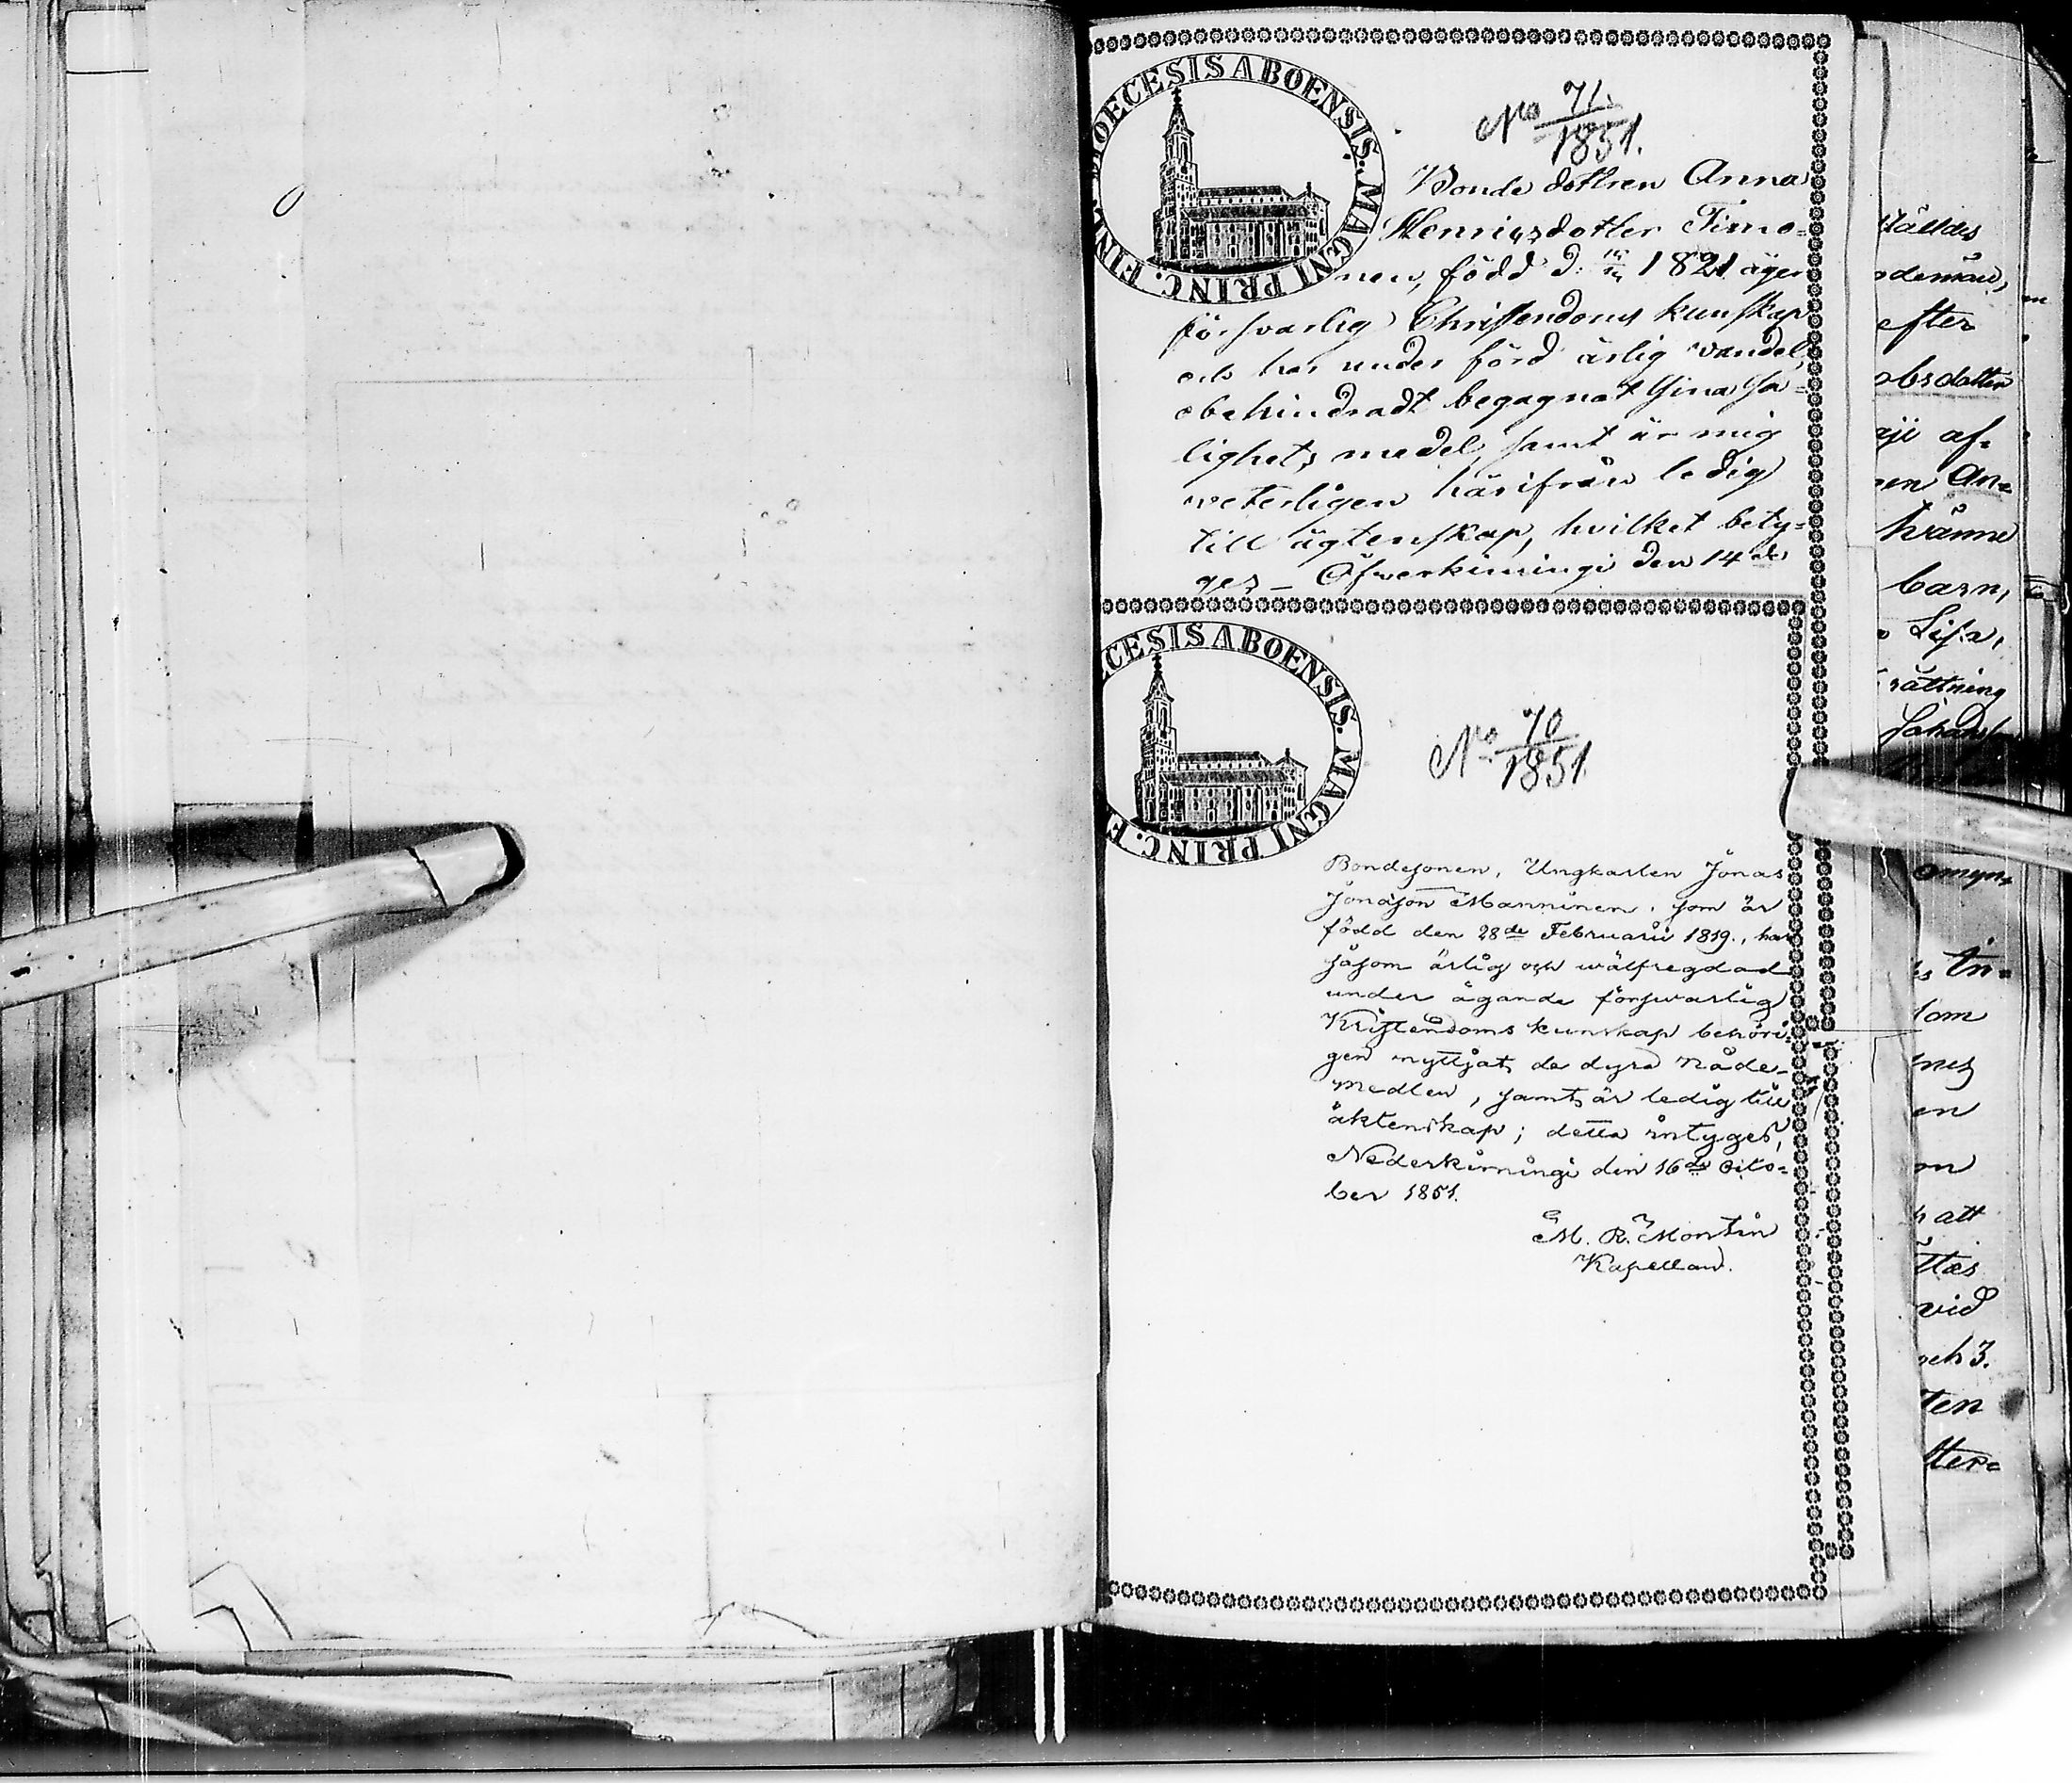 DIOECESIS ABOENSIS. MAGNI PRINC. FINL.
No 71.
1851.
Bonde dottren Anna
Henricsdotter Timo=
nen, född d. 1821 äger
försvarlig Christendoms kunskap
och har under förd ärlig vandel,
obehindradt begagnat sina Sa=
lighets medel, samt är mig
veterligen härifrån ledig
till ägtenskap, hvilket bety=
ges _ Öfverkiimingi den 14de
CESIS ABOENSIS. MAGNI PRINC. F
No 70
1851.
Bondesonen, Ungkarlen Jonas
Jonasson Manninen, som är
född den 28de Februarii 1819., har
såsom ärlig och wälfregdad
under ägande försvarlig
Kristendoms kunskap behöri-
gen nyttjat de dyra Nåde-
medlen, samt är ledig till
äktenskap; detta intyges,
Nederkiimingi den 16de Octo=
ber 1851.
M. R. Montin
Kapellan.
ställdes
efter
obsdotter
aji af=
en An=
barn,
rättning
omyn=
tn=
om
en
on
att
vid
och 3.
ten